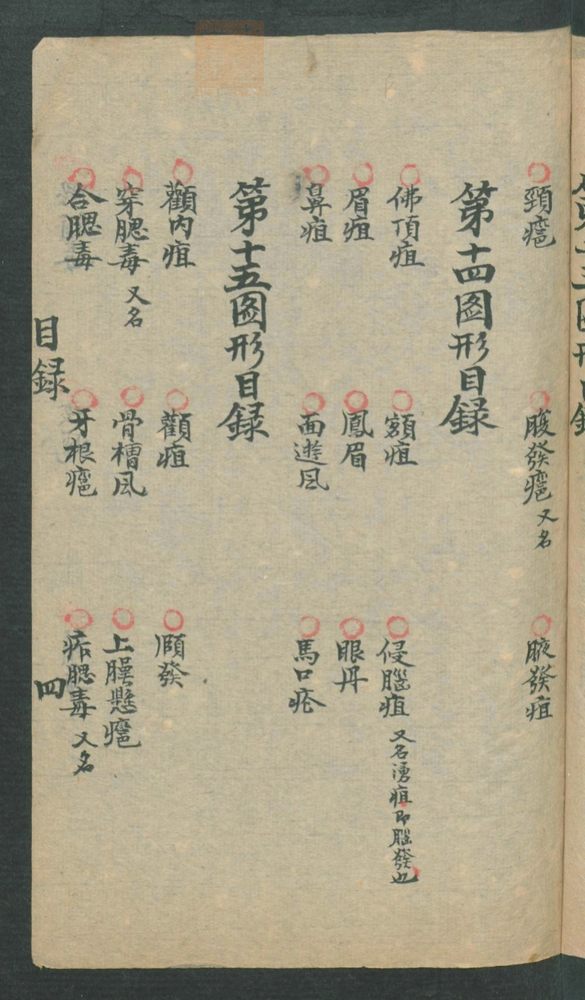 頸癰 腹發癰 又名 腋發疽
第十四圖形目錄
佛頂疽 額疽 侵腦疽 又名湧疽即腦發也
眉疽 鳳眉 眼丹
鼻疽 面遊風 馬口疮
第十五圖形目錄
顴內疽 顴疽 頤發
穿腮毒 又名 骨槽風 上腭懸癰
合腮毒 牙根癰 痄腮毒 又名
目錄 四